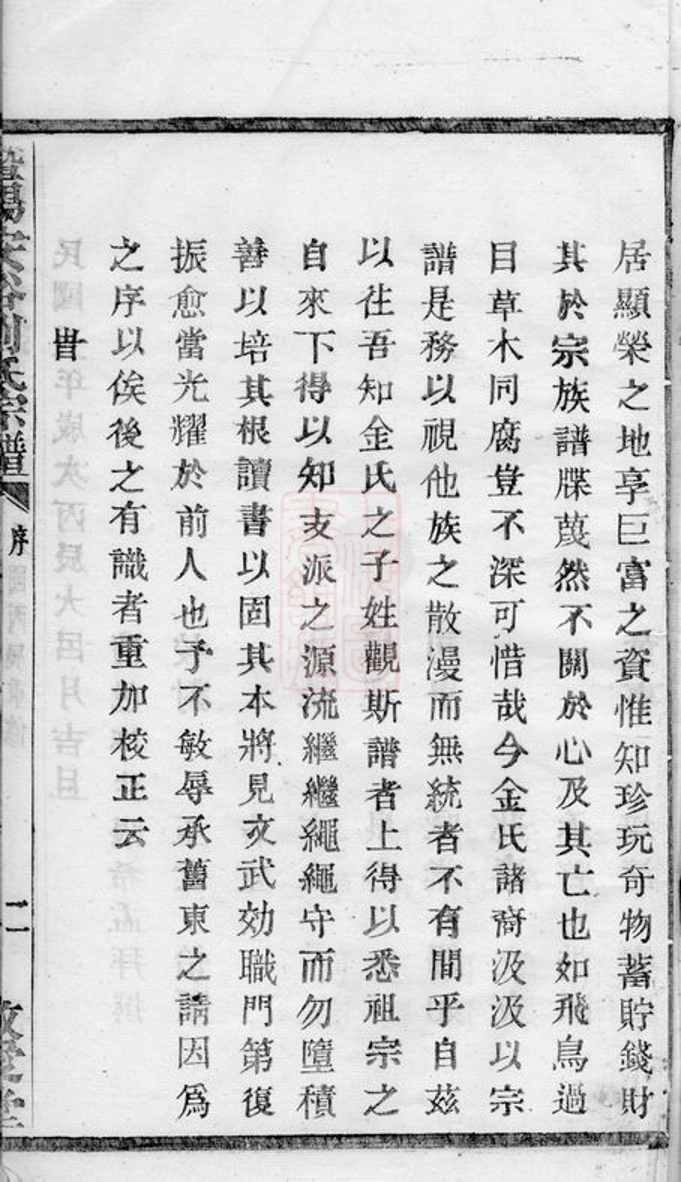 居顯榮之地享巨富之資惟知珍玩奇物蓄貯錢財
其於宗族譜牒蔑然不關於心及其亡也如飛鳥過
目草木同腐豈不深可惜哉今金氏諸裔汲汲以宗
譜是務以視他族之散漫而無統者不有間乎自茲
以往吾知金氏之子姓觀斯譜者上得以悉祖宗之
自來下得以知支派之源流繼繼繩繩守而勿墮積
善以培其根讀書以固其本將見文武効職門第復
振愈當光耀於前人也予不敏辱承舊東之請因爲
之序以俟後之有識者重加校正云
旹
氏宗譜
序
二